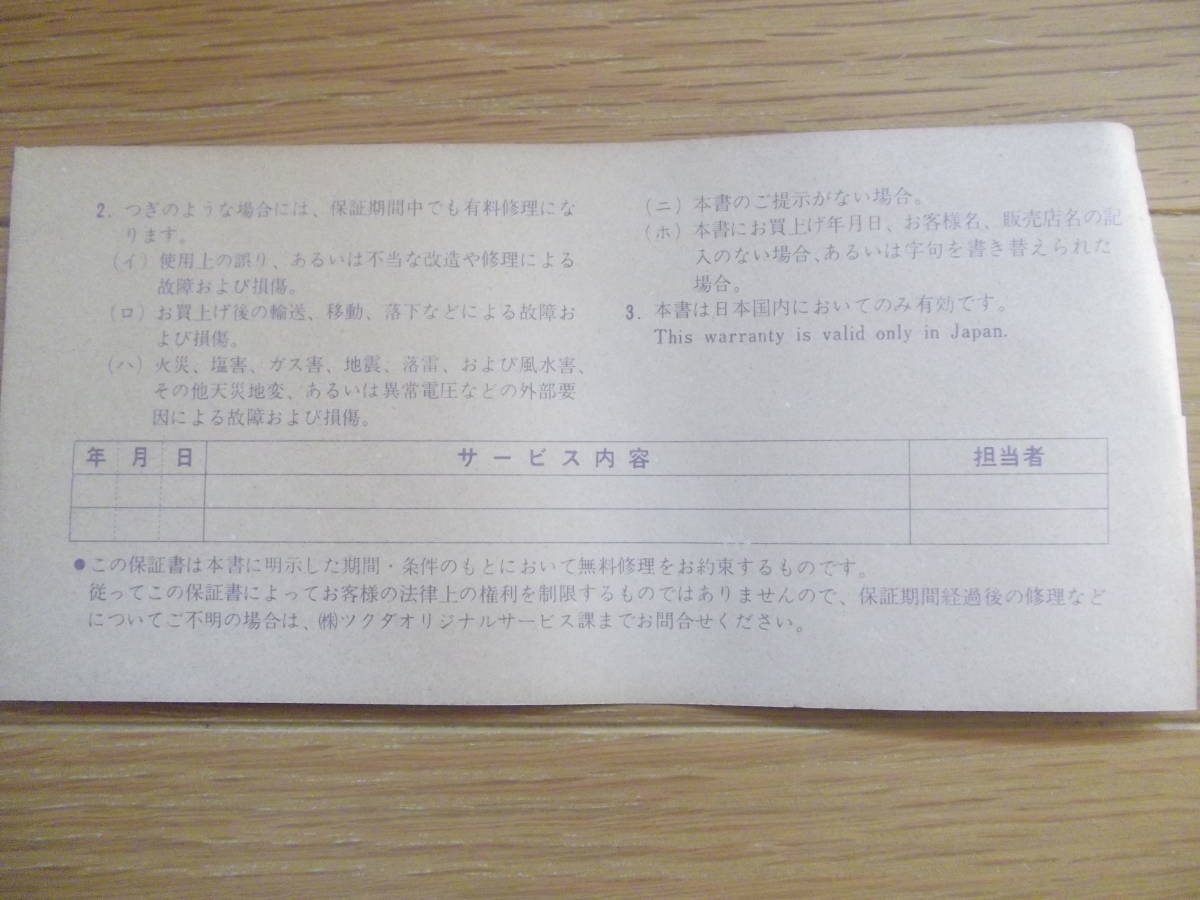 2. つぎのような場合には、保証期間中でも有料修理にな
ります。
(イ) 使用上の誤り、あるいは不当な改造や修理による
故障および損傷。
(ロ) お買上げ後の輸送、移動、落下などによる故障お
よび損傷。
(ハ) 火災、塩害、ガス害、地震、落雷、および風水害、
その他天災地変、あるいは異常電圧などの外部要
因による故障および損傷。
(ニ) 本書のご提示がない場合。
(ホ) 本書にお買上げ年月日、お客様名、販売店名の記
入のない場合、あるいは字句を書き替えられた
場合。
3. 本書は日本国内においてのみ有効です。
This warranty is valid only in Japan.
年 月 日 サービス内容 担当者
●この保証書は本書に明示した期間・条件のもとにおいて無料修理をお約束するものです。
従ってこの保証書によってお客様の法律上の権利を制限するものではありませんので、保証期間経過後の修理など
についてご不明の場合は、㈱ツクダオリジナルサービス課までお問合せください。